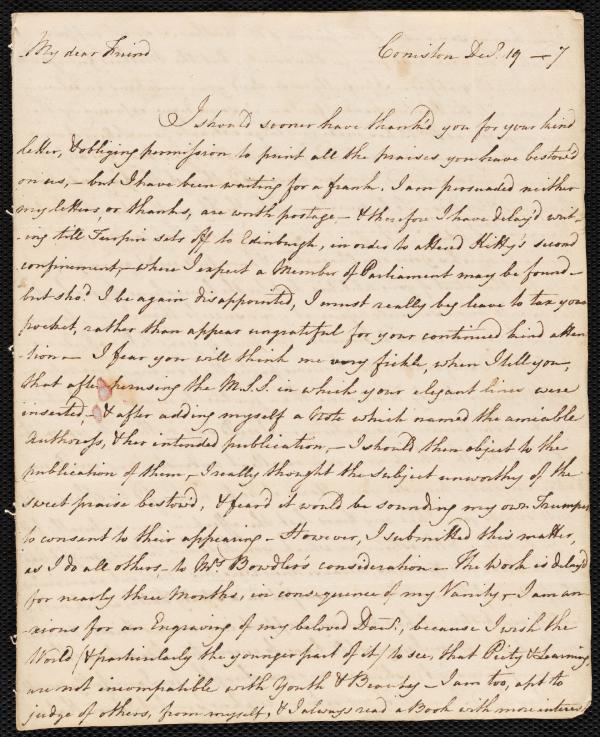 My dear Friend Coniston Decr. 19 – 7
I should sooner have thank'd you for your kind
letter, & obliging permission to print all the praises you have bestow'd
on us, – but I have been waiting for a frank. I am persuaded neither
my letters, or thanks, are worth postage – & therefore I have delay'd writ-
-ing till Turpin sets off to Edinburgh, in order to attend Kitty's second
confinement, – where I expect a Member of Parliament may be found –
but shod. I be again disappointed, I must really beg leave to tax your
pocket, rather than appear ungrateful for your continued kind atten
-tion – I fear you will think me very fickle, when I tell you,
that after perusing the M.S.S. in which your elegant lines were
inserted, – & after adding myself a Note which named the amiable
Authoress, & her intended publication, – I should then object to the
publication of them, – I really thought the subject unworthy of the
sweet praise bestow'd, & fear'd it would be sounding my own Trumpet
to consent to their appearing – However, I submitted this matter,
as I do all others, to Mrs. Bowdler's consideration – The work is delay'd
for nearly three Months, in consequence of my Vanity, – I am an-
-xious for an Engraving of my beloved Daur., because I wish the
World (& particularly the younger part of it) to see, that Piety & Learning
are not incompatible with Youth & Beauty – I am too, apt to
judge of others, from myself, & I always read a Book with more interest